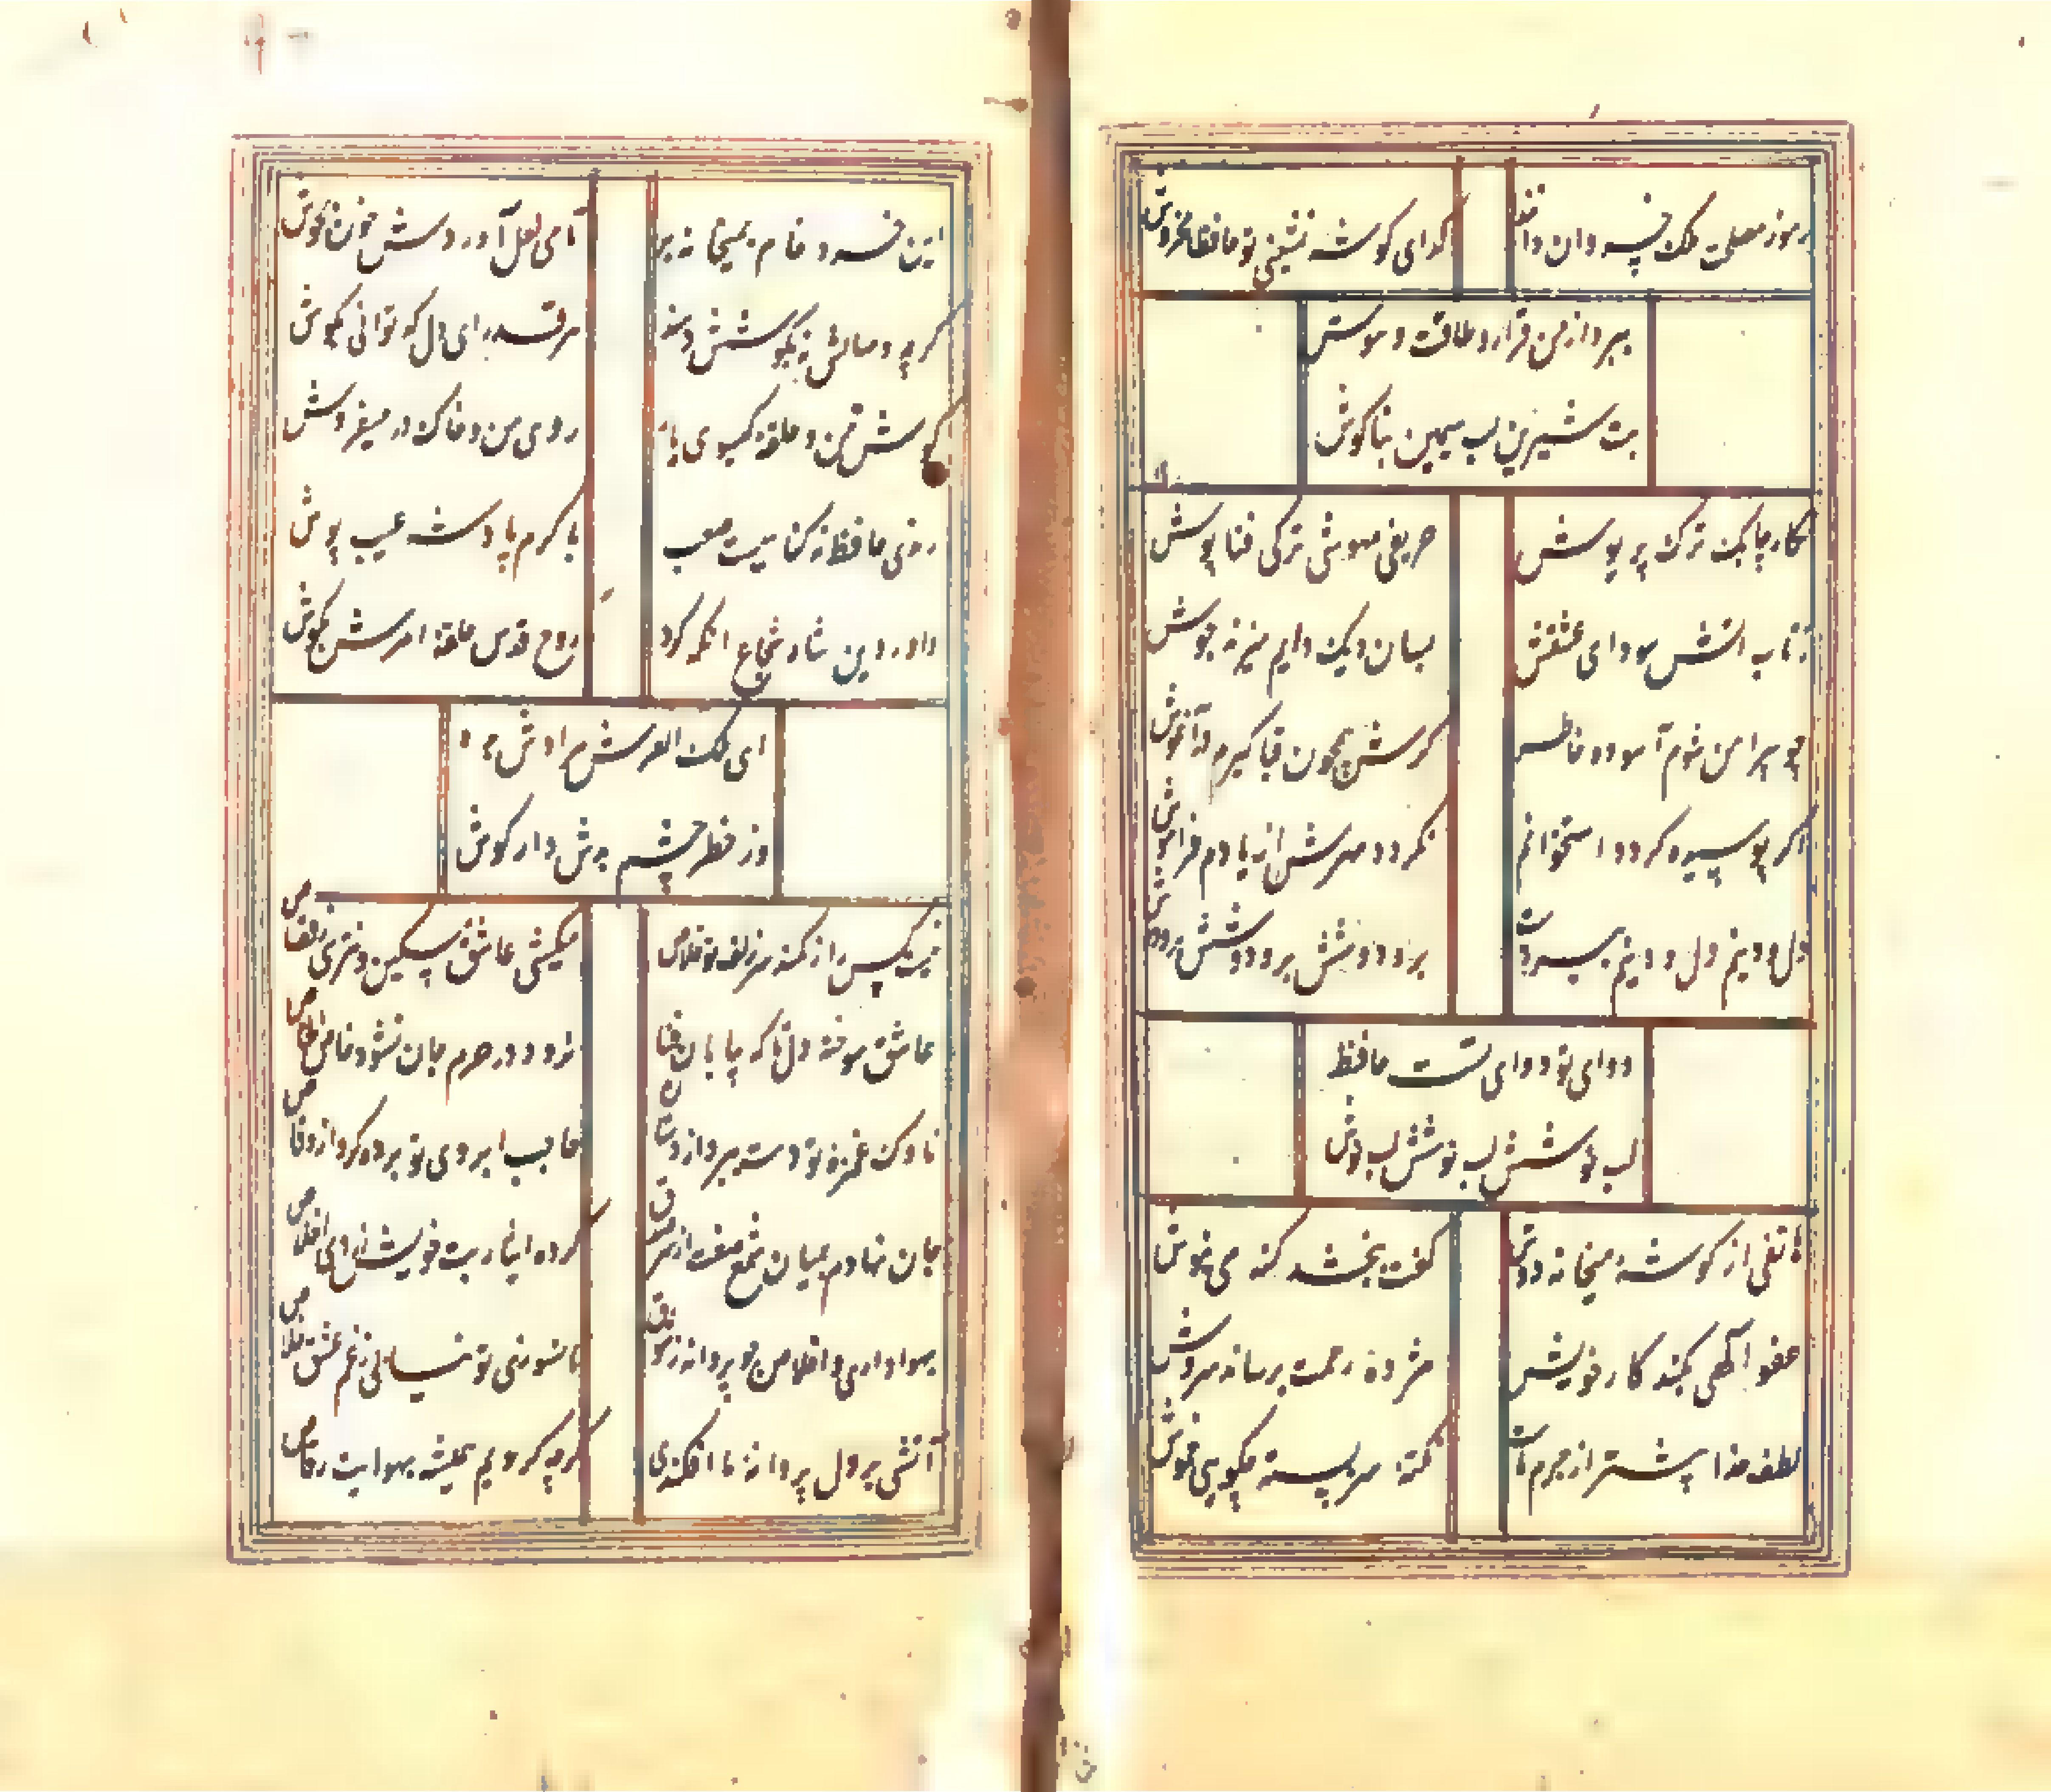 رموز مصلحت ملک خسروان دانند
کدای کوشه نشینی تو حافظا مخروش
ببرد از من قرار و طاقت و هوش
بت شیرین لب سیمین بناکوش
نکار چابک ترک پریوش
حریفی مهوشی ترکی قباپوش
زتاب اتش سودای عشقش
بسان دیک دایم میزنم جوش
چو پیراهن شوم آسوده خاطر
کرش همچون قبا کیرم در آغوش
اکر پوسیده کردد استخوانم
نکردد مهرش از یادم فراموش
دل و دینم دل و دینم ببردست
بر و دوشش بر و دوشش بر و دوش
دوای تو دوای تست حافظ
لب نوشش لب نوشش لب نوش
هاتفی از کوشهٔ میخانه دوش
کفت ببخشند کنه می بنوش
عفو الهی بکند کار خویش
مژدهٔ رحمت برساند سروش
لطف خدا بیشتر از جرم ماست
نکتهٔ سربسته چکویی خموش
این خرد خام بمیخانه بر
تا می لعل آوردش خون بجوش
کرچه وصالش نه بکوشش دهند
هر قدر ای دل که توانی بکوش
کوش من و حلقهٔ کیسوی یار
روی من و خاک در میفروش
رندی حافظ نه کناهیست صعب
با کرم پادشه عیب پوش
داور دین شاه شجاع انکه کرد
روح قدس حلقهٔ امرش بکوش
ای ملک العرش مرادش بده
وز خطر چشم بدش دار کوش
نیست کس را ز کمند سر زلف تو خلاص
میکشی عاشق مسکین و نترسی ز قصاص
عاشق سوخته دل تا که بیابان فنا
نرود در حرم جان نشود خاص الخاص
ناوک غمزهٔ تو دست ببرد از دستان
حاجب ابروی تو برده کرو از وقاص
جان نهادم بمیان شمع صفت از سر شوق
کرده ایثار تن خویش ز روی اخلاص
بهواداری و اخلاص چو پروانه ز شوق
تا نسوزی تو نیابی ز غم عشق خلاص
آتشی بر دل پروانهٔ ما افکندی
کرچه کردیم همیشه بهوایت رقاص